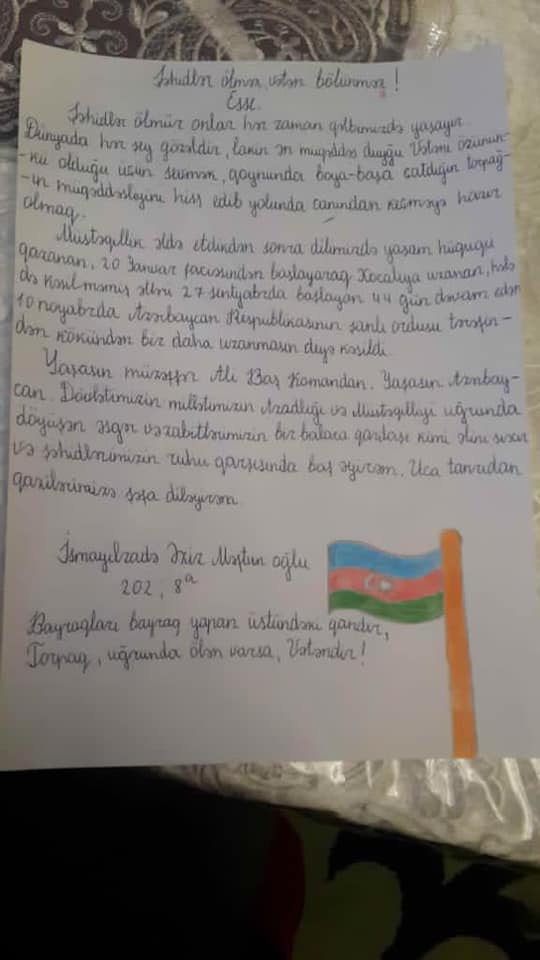 Şəhidlər ölməz, vətən bölünməz!
Esse.
Şəhidlər ölmür onlar hər zaman qəlbimizdə yaşayır.
Dünyada hər şey gözəldir, lakin ən müqəddəs duyğu Vətəni özünün-
-kü olduğu üçün sevmək, qoynunda boya-başa çatdığın torpağ-
-ın müqəddəsləyini hiss edib yolunda canından keçməyə hazır
olmaq.
Müstəqillik əldə etdikdən sonra dilimizdə yaşam hüququ
qazanan, 20 Yanvar faciəsindən başlayaraq Xocalıya uzanan, hələ
də kəsilməmiş əlləri 27 sentyabrda başlayan 44 gün davam edən
10 noyabrda Azərbaycan Respublikasının şanlı ordusu tərəfin-
dən kökündən bir daha uzanmasın deyə kəsildi.
Yaşasın müzəffər Ali Baş Komandan. Yaşasın Azərbay-
can. Dövlətimizin millətimizin Azadlığı və Müstəqilliyi uğrunda
döyüşən əsgər və zabitlərimizin bir balaca qardaşı kimi əlini sıxır
və şəhidlərimizin ruhu qarşısında baş əyirəm. Uca tanrıdan
qazilərimizə şəfa diləyirəm
İsmayılzadə Əziz oğlu
202, 8ᵃ
Bayraqları bayraq yapan üstündəki qandır,
Torpaq, uğrunda ölən varsa, Vətəndir!